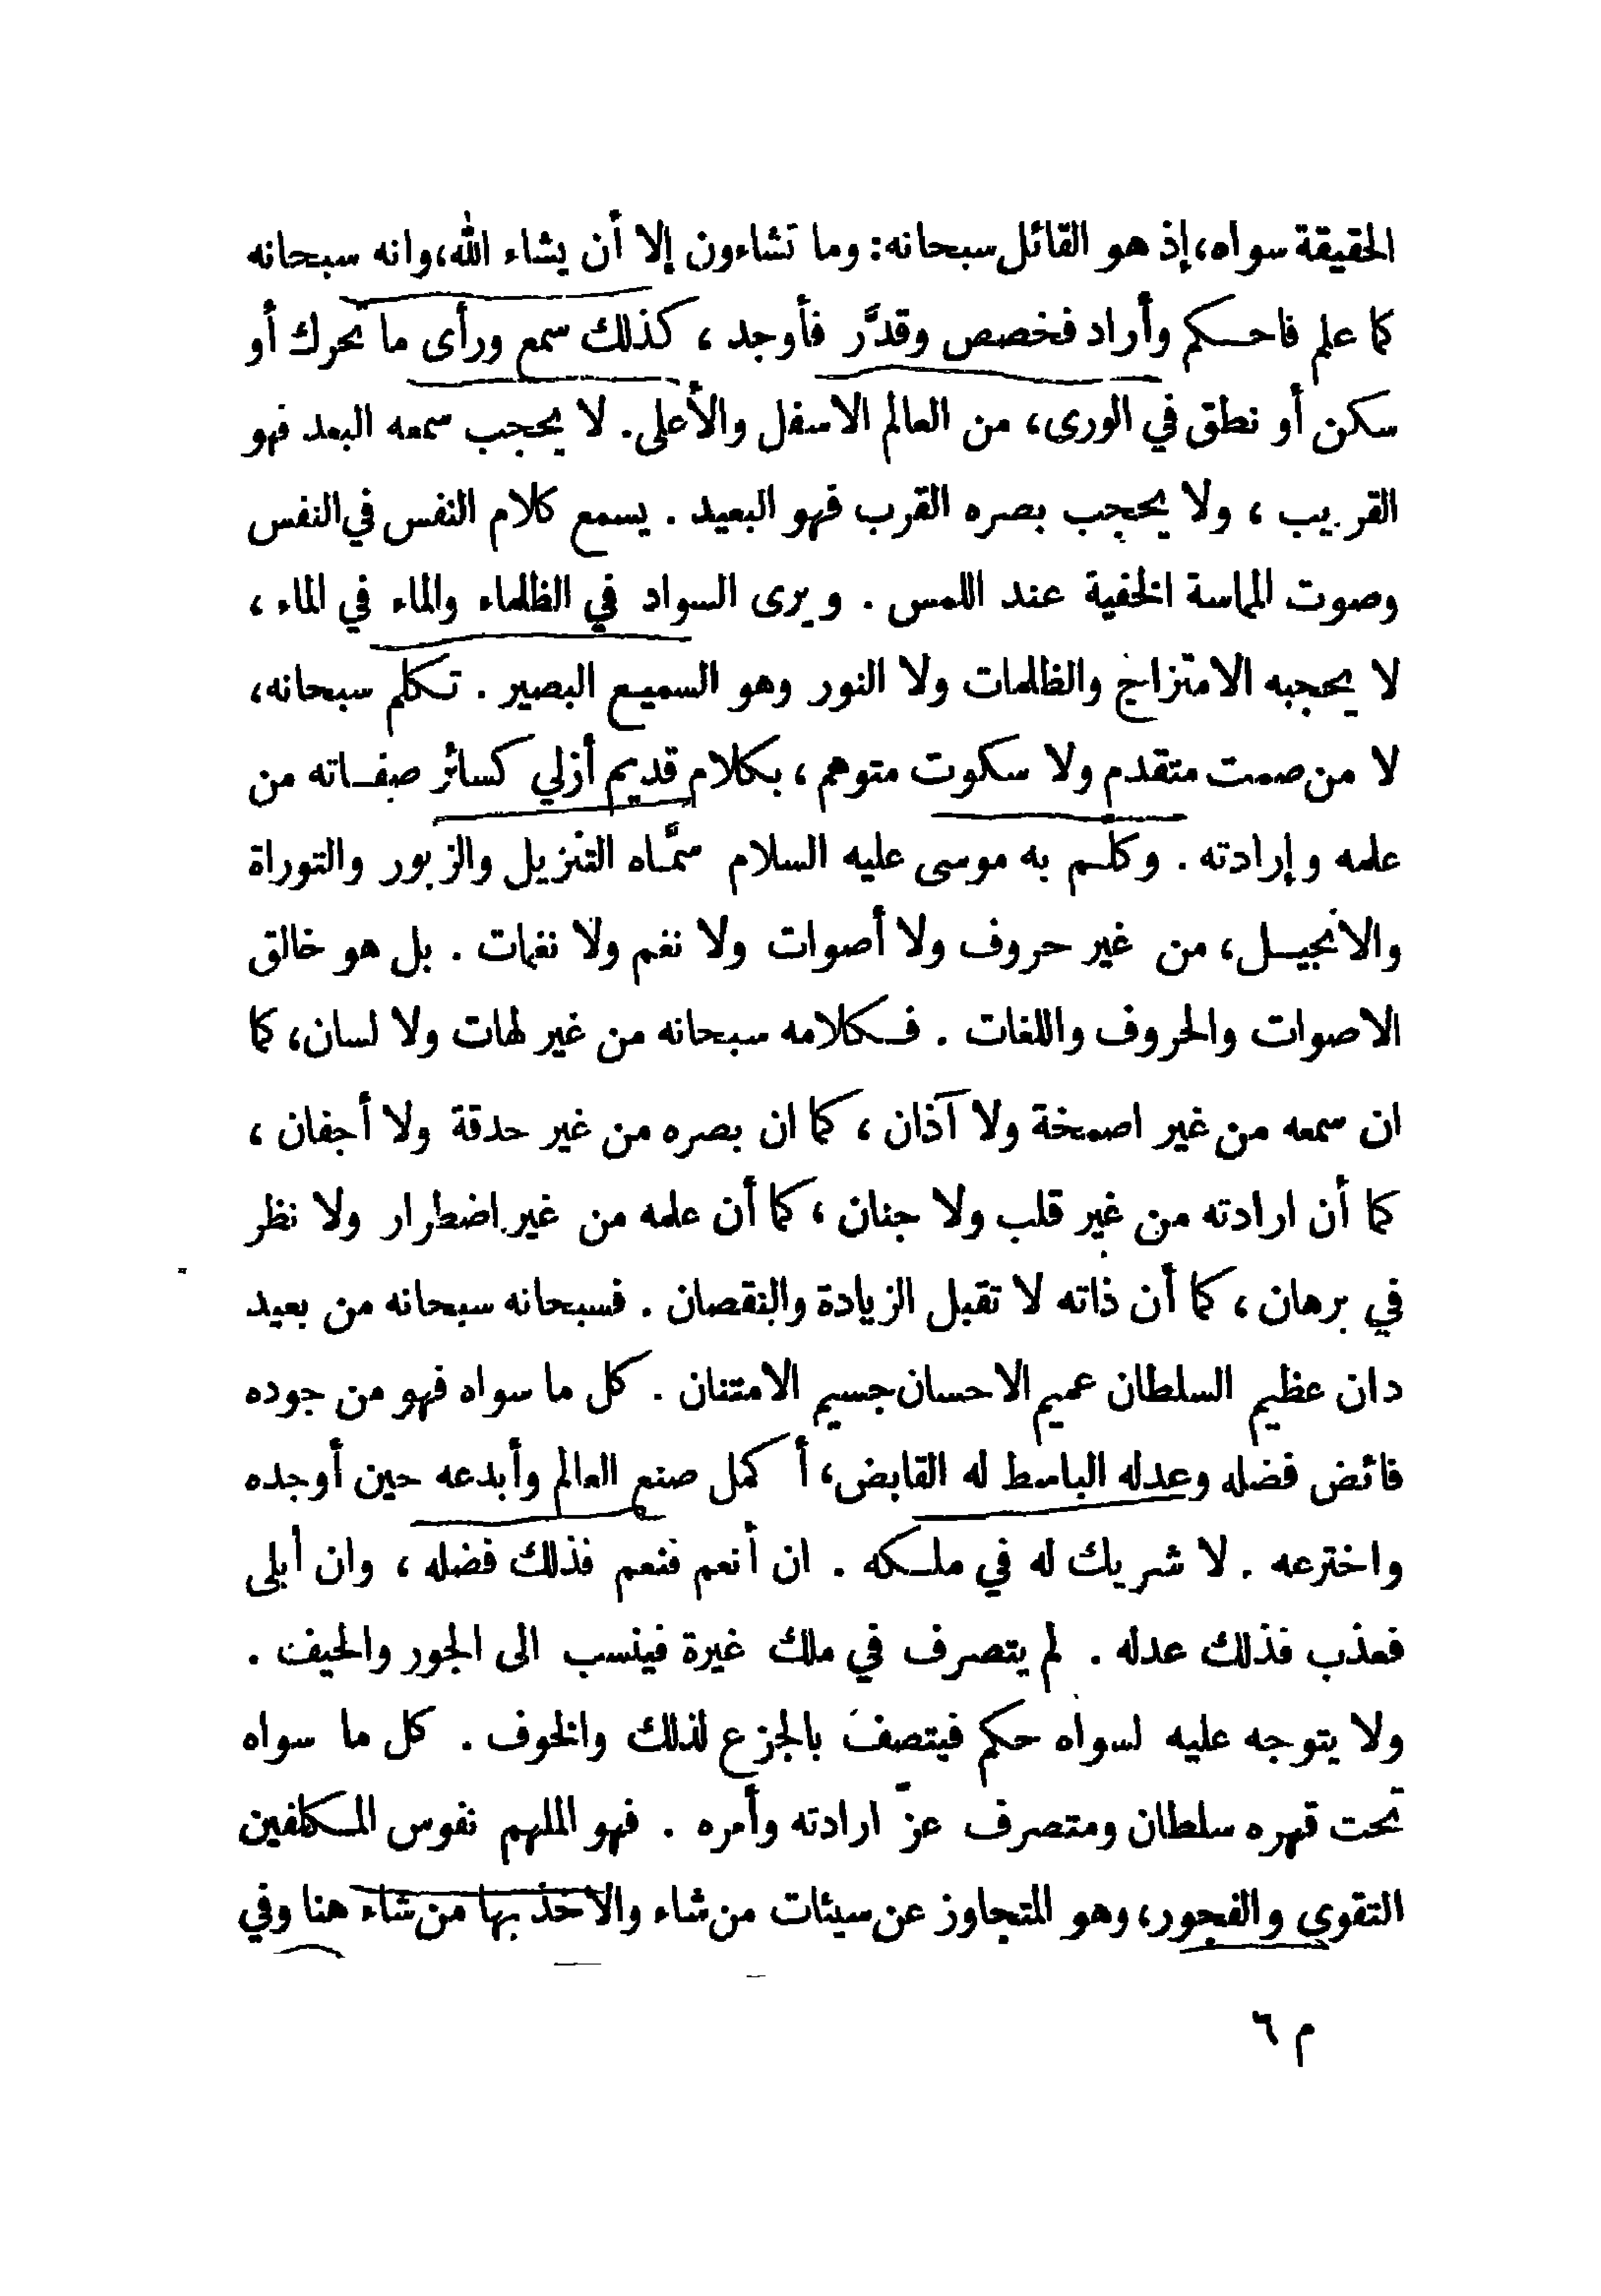 الحقيقة سواه، إذ هو القائل سبحانه: وما تشاءون إلا أن يشاء الله، وانه سبحانه
كما علم فاحكم وأراد فخصص وقدَّر فأوجد ، كذلك سمع ورأى ما تحرك أو
سكن أو نطق في الورى، من العالم الاسفل والأعلى. لا يحجب سمعه البعد فهو
القريب ، ولا يحجب بصره القرب فهو البعيد . يسمع كلام النفس في النفس
وصوت المماسة الخفية عند اللمس . ويرى السواد في الظلماء والماء في الماء ،
لا يحجبه الامتزاج والظلمات ولا النور وهو السميع البصير . تكلم سبحانه،
لا من صمت متقدم ولا سكوت متوهم ، بكلام قديم أزلي كسائر صفاته من
علمه وإرادته . وكلَّم به موسى عليه السلام سمَّاه التنزيل والزبور والتوراة
والانجيل، من غير حروف ولا أصوات ولا نغم ولا نغمات . بل هو خالق
الاصوات والحروف واللغات . فكلامه سبحانه من غير لهات ولا لسان، كما
ان سمعه من غير اصمخة ولا آذان ، كما ان بصره من غير حدقة ولا أجفان ،
كما أن ارادته من غير قلب ولا جنان ، كما أن علمه من غير اضطرار ولا نظر
في برهان ، كما أن ذاته لا تقبل الزيادة والنقصان . فسبحانه سبحانه من بعيد
دان عظيم السلطان عميم الاحسان جسيم الامتنان . كل ما سواه فهو من جوده
فائض فضله وعدله الباسط له القابض، أكمل صنع العالم وأبدعه حين أوجده
واخترعه . لا شريك له في ملكه . ان أنعم فنعم فذلك فضله ، وان أبلى
فعذب فذلك عدله . لم يتصرف في ملك غيرة فينسب الى الجور والحيف .
ولا يتوجه عليه لسواه حكم فيتصف بالجزع لذلك والخوف . كل ما سواه
تحت قهره سلطان ومتصرف عزّ ارادته وأمره . فهو الملهم نفوس المكلفين
التقوى والفجور، وهو المتجاوز عن سيئات من شاء والاخذ بها من شاء هنا وفي
م ٦